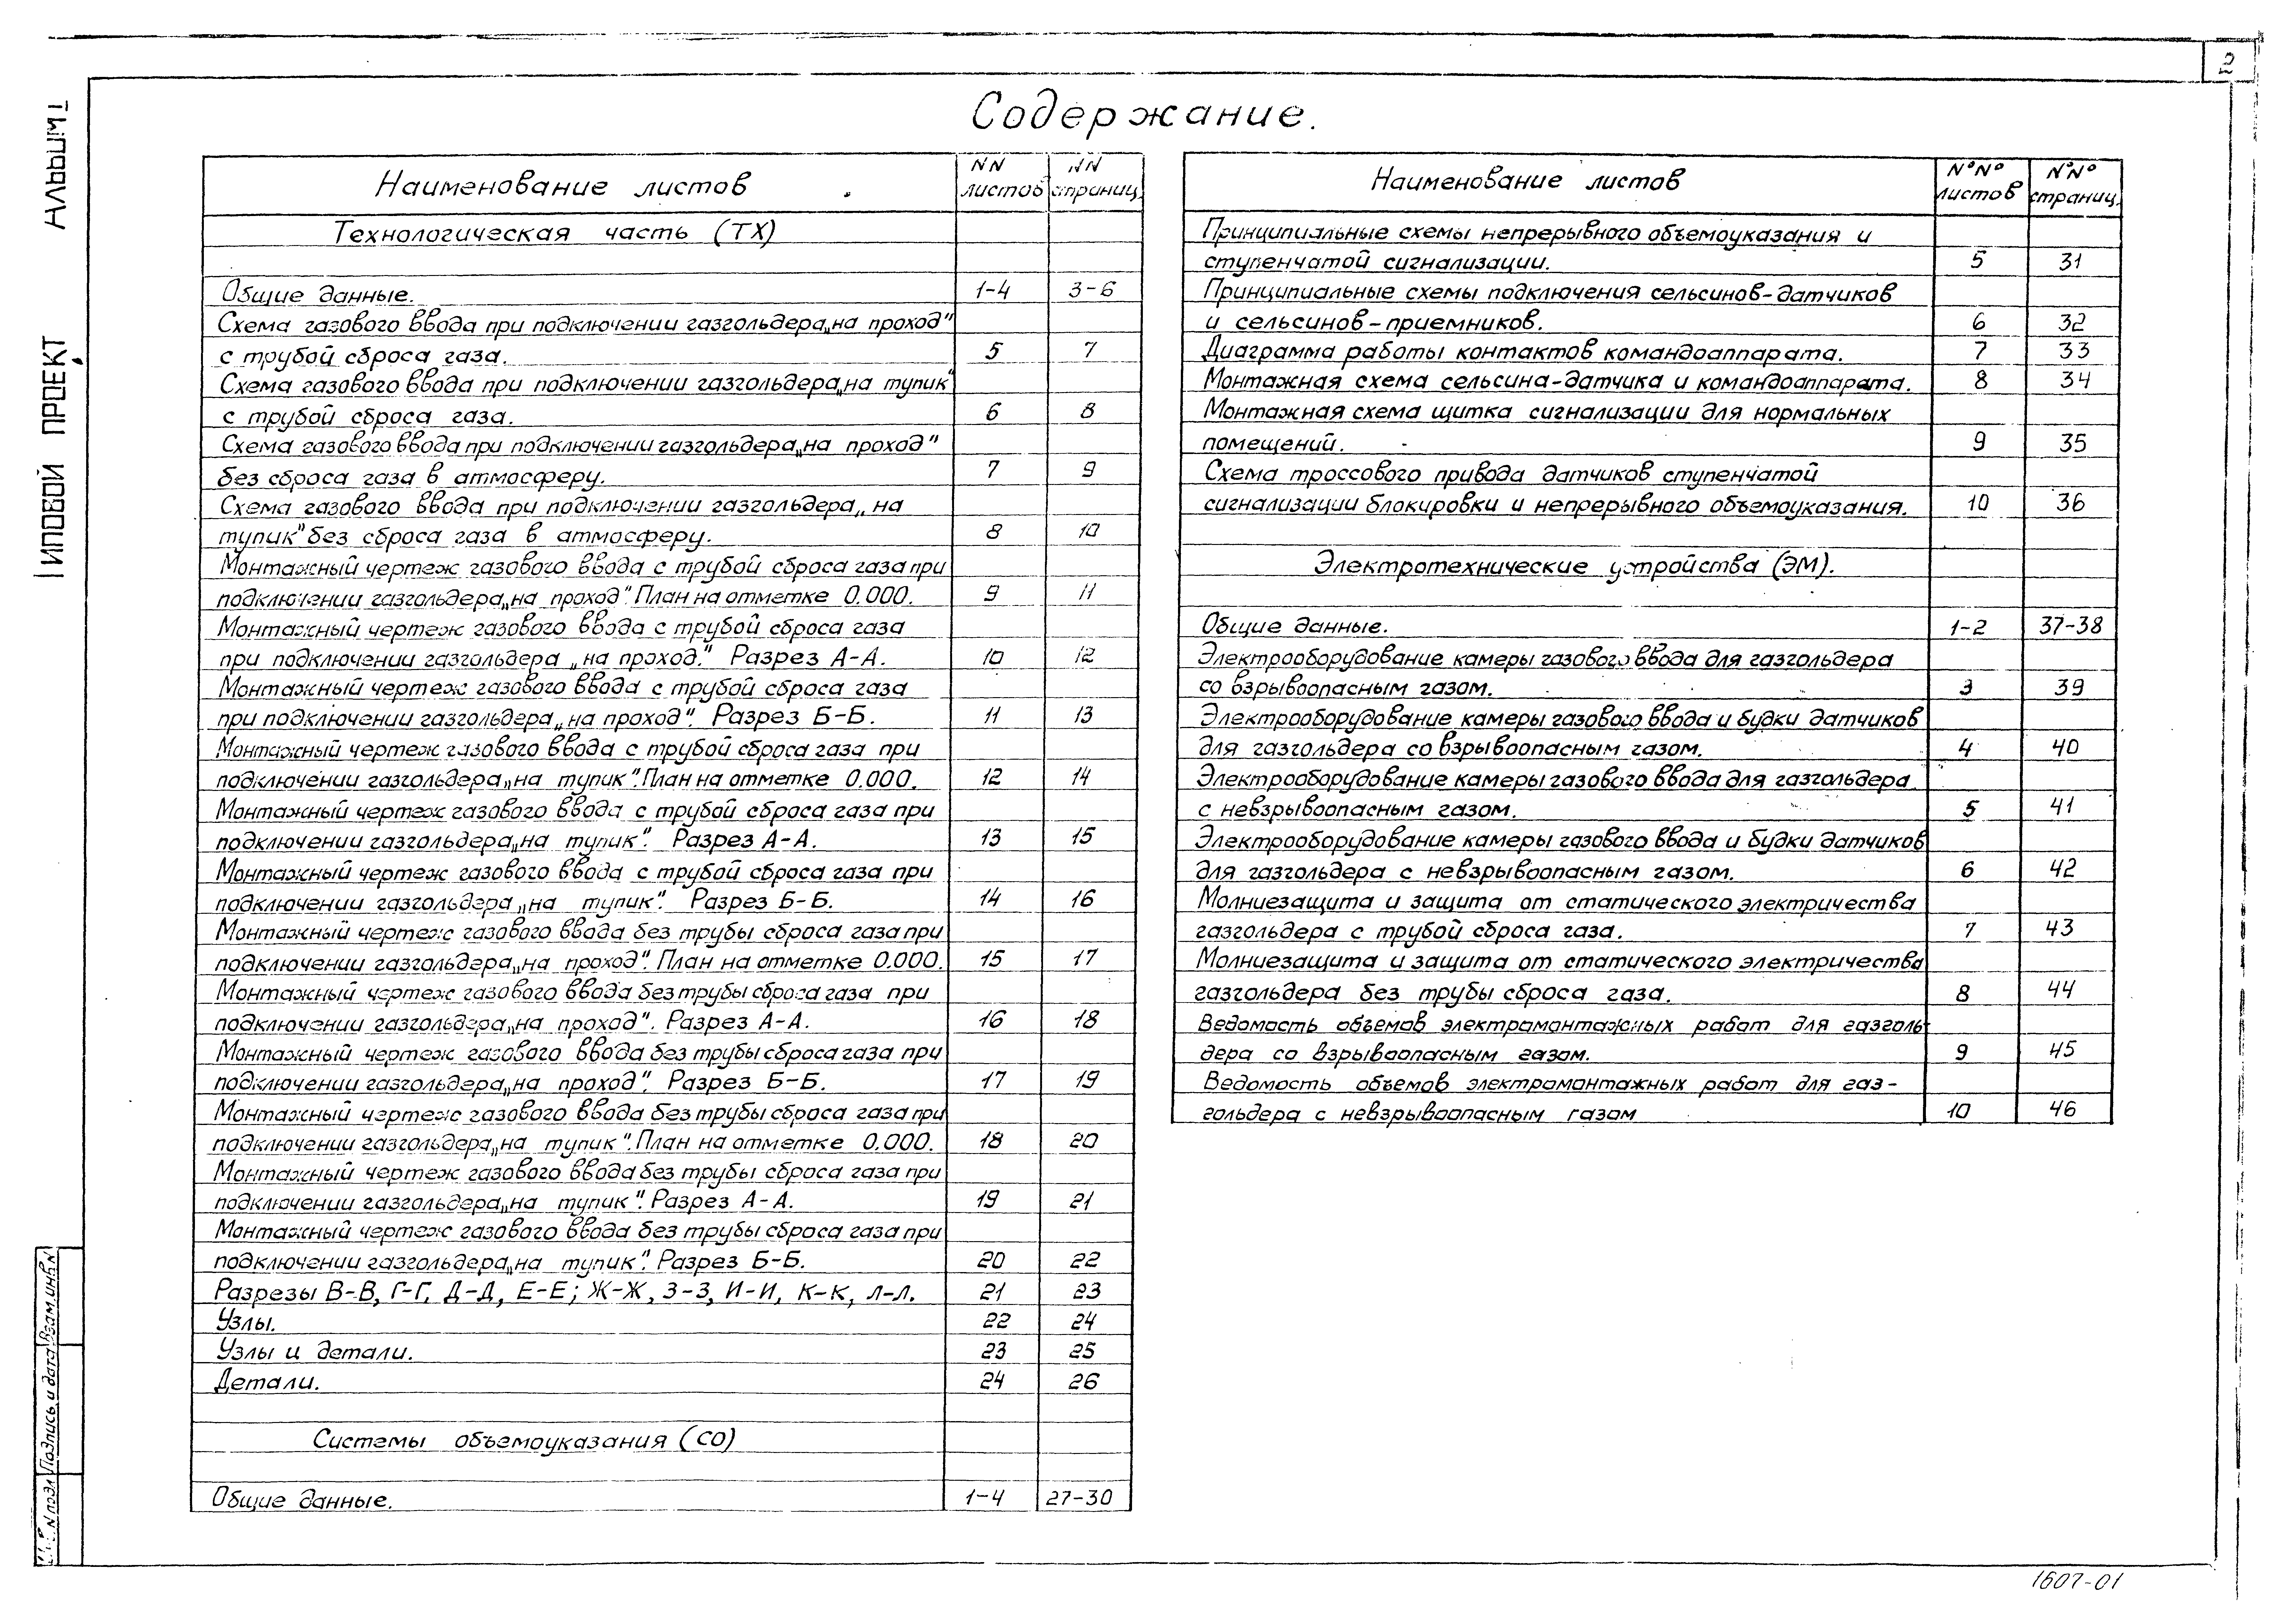 2
Содержание.
Альбом I
Типовой проект
Наименование листов NN листов NN страниц.
Технологическая часть (ТХ)
Общие данные. 1-4 3-6
Схема газового ввода при подключении газгольдера „на проход"
с трубой сброса газа. 5 7
Схема газового ввода при подключении газгольдера „на тупик"
с трубой сброса газа. 6 8
Схема газового ввода при подключении газгольдера „на проход"
без сброса газа в атмосферу. 7 9
Схема газового ввода при подключении газгольдера „на
тупик" без сброса газа в атмосферу. 8 10
Монтажный чертеж газового ввода с трубой сброса газа при
подключении газгольдера „на проход". План на отметке 0.000. 9 11
Монтажный чертеж газового ввода с трубой сброса газа
при подключении газгольдера „на проход." Разрез А-А. 10 12
Монтажный чертеж газового ввода с трубой сброса газа
при подключении газгольдера „на проход". Разрез Б-Б. 11 13
Монтажный чертеж газового ввода с трубой сброса газа при
подключении газгольдера „на тупик". План на отметке 0.000. 12 14
Монтажный чертеж газового ввода с трубой сброса газа при
подключении газгольдера „на тупик". Разрез А-А. 13 15
Монтажный чертеж газового ввода с трубой сброса газа при
подключении газгольдера „на тупик". Разрез Б-Б. 14 16
Монтажный чертеж газового ввода без трубы сброса газа при
подключении газгольдера „на проход". План на отметке 0.000. 15 17
Монтажный чертеж газового ввода без трубы сброса газа при
подключении газгольдера „на проход". Разрез А-А. 16 18
Монтажный чертеж газового ввода без трубы сброса газа при
подключении газгольдера „на проход". Разрез Б-Б. 17 19
Монтажный чертеж газового ввода без трубы сброса газа при
подключении газгольдера „на тупик". План на отметке 0.000. 18 20
Монтажный чертеж газового ввода без трубы сброса газа при
подключении газгольдера „на тупик". Разрез А-А. 19 21
Монтажный чертеж газового ввода без трубы сброса газа при
подключении газгольдера „на тупик". Разрез Б-Б. 20 22
Разрезы В-В, Г-Г, Д-Д, Е-Е; Ж-Ж, З-З, И-И, К-К, Л-Л. 21 23
Узлы. 22 24
Узлы и детали. 23 25
Детали. 24 26
Системы объемоуказания (СО)
Общие данные. 1-4 27-30
Наименование листов №№ листов №№ страниц.
Принципиальные схемы непрерывного объемоуказания и
ступенчатой сигнализации. 5 31
Принципиальные схемы подключения сельсинов-датчиков
и сельсинов-приемников. 6 32
Диаграмма работы контактов командоаппарата. 7 33
Монтажная схема сельсина-датчика и командоаппарата. 8 34
Монтажная схема щитка сигнализации для нормальных
помещений. 9 35
Схема троссового привода датчиков ступенчатой
сигнализации блокировки и непрерывного объемоуказания. 10 36
Электротехнические устройства (ЭМ).
Общие данные. 1-2 37-38
Электрооборудование камеры газового ввода для газгольдера
со взрывоопасным газом. 3 39
Электрооборудование камеры газового ввода и будки датчиков
для газгольдера со взрывоопасным газом. 4 40
Электрооборудование камеры газового ввода для газгольдера
с невзрывоопасным газом. 5 41
Электрооборудование камеры газового ввода и будки датчиков
для газгольдера с невзрывоопасным газом. 6 42
Молниезащита и защита от статического электричества
газгольдера с трубой сброса газа. 7 43
Молниезащита и защита от статического электричества
газгольдера без трубы сброса газа. 8 44
Ведомость объемов электромонтажных работ для газголь-
дера со взрывоопасным газом. 9 45
Ведомость объемов электромонтажных работ для газ-
гольдера с невзрывоопасным газом 10 46
Инв. N подл Подпись и дата Взам. инв. N
1607-01